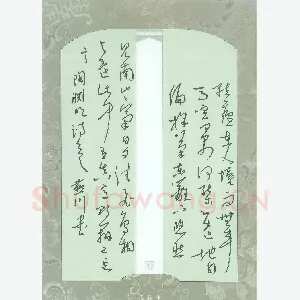 结庐在人境而无车
马喧问君何能尔心远地自
偏采菊东篱下悠然
见南山山气日夕佳飞鸟相
与还此中有真意欲辨已忘
言陶渊明诗 书
Shufawang.CN